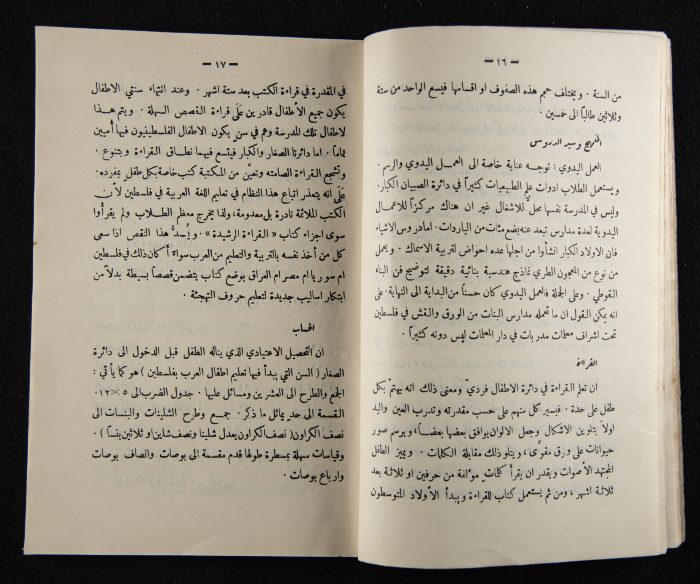 — ١٦ —
من السنة . ويختلف حجم هذه الصفوف او اقسامها فيسع الواحد من ستة
وثلاثين طالباً الى خمسين .
المنهج وسير الدروس
العمل اليدوي : توجه عناية خاصة الى العمل اليدوي والرسم .
ويستعمل الطلاب ادوات علم الطبيعيات كثيراً في دائرة الصبيان الكبار .
وليس في المدرسة نفسها محل للاشغال غير ان هناك مركزاً للاعمال
اليدوية لعدة مدارس تبعد عنه بضع مئات من الياردات . اما دروس الاشياء
فان الاولاد الكبار انشأوا من اجلها عدة احواض لتربية الاسماك . ويعمل
من نوع من المعجون الطري نماذج هندسية بنائية دقيقة لتوضيح فن البناء
القوطي . وعلى الجملة فالعمل اليدوي كان حسناً من البداية الى النهاية . على
انه يمكن القول ان ما تعمله مدارس البنات من الورق والقش في فلسطين
تحت اشراف معلمات مدربات في دار المعلمات ليس دونه كثيراً .
القراءة
ان تعلم القراءة في دائرة الاطفال فردي ومعنى ذلك انه يهتم بكل
طفل على حدة . فيسير كل منهم على حسب مقدرته وتدرب العين واليد
اولاً بتلوين الاشكال وجعل الالوان يوافق بعضها بعضاً ، وبرسم صور
حيوانات على ورق مقوى ، ويتلو ذلك مقابلة الكلمات . ويميز الطفل
المجتهد الأصوات ويقدر ان يقرأ كلمات مؤلفة من حرفين او ثلاثة بعد
ثلاثة اشهر ، ومن ثم يستعمل كتاب للقراءة ويبدأ الأولاد المتوسطون
— ١٧ —
في المقدرة في قراءة الكتب بعد ستة اشهر . وعند انتهاء سنتي الاطفال
يكون جميع الأطفال قادرين على قراءة القصص السهلة . ويتم هذا
لاطفال تلك المدرسة وهم في سن يكون الاطفال الفلسطينيون فيها أميين
تماماً . اما دائرتا الصغار والكبار فيتسع فيهما نطاق القراءة ويتنوع .
وتشجع القراءة الصامتة وتعين من المكتبة كتب خاصة بكل طفل بمفرده .
على انه يتعذر اتباع هذا النظام في تعليم اللغة العربية في فلسطين لأن
الكتب الملائمة نادرة بل معدومة ، ولذا يخرج معظم الطلاب ولم يقرأوا
سوى اجزاء كتاب « القراءة الرشيدة » . ويُسد هذا النقص اذا سعى
كل من أخذ نفسه بالتربية والتعليم من العرب سواء أكان ذلك في فلسطين
ام سوريا ام مصر ام العراق بوضع كتاب يتضمن قصصاً بسيطة بدلاً من
ابتكار اساليب جديدة لتعليم حروف التهجئة .
الحساب
ان التحصيل الاعتيادي الذي يناله الطفل قبل الدخول الى دائرة
الصغار ( السن التي يبدأ فيها تعليم اطفال العرب بفلسطين ) هو كما يأتي :
الجمع والطرح الى العشرين ومسائل عليها . جدول الضرب الى ٥ × ١٢ .
القسمة الى حد يماثل ما ذكر . جمع وطرح الشلينات والبنسات الى
نصف الكراون ( نصف الكراون يعدل شلينا ونصف شلين او ثلاثين بنساً ) .
وقياسات سهلة بمسطرة طولها قدم مقسمة الى بوصات وانصاف بوصات
وارباع بوصات .